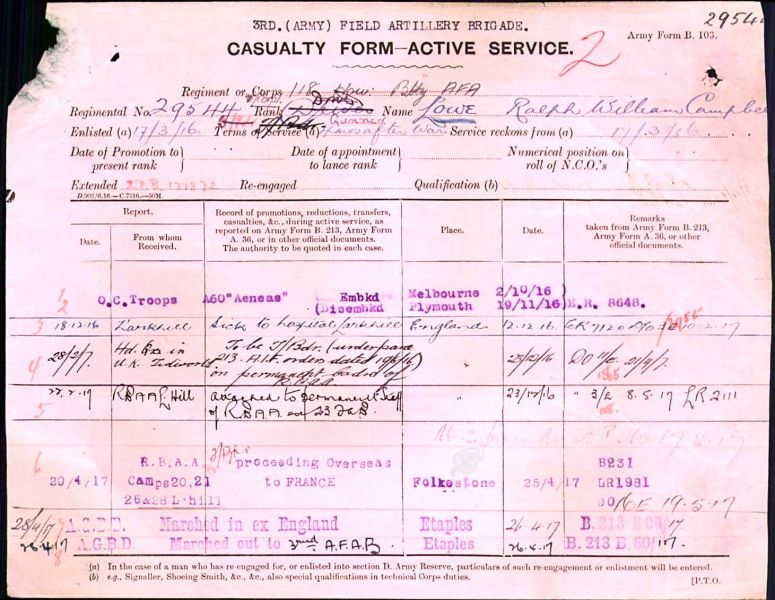 29544
3RD. (ARMY) FIELD ARTILLERY BRIGADE.
Army Form B. 103.
CASUALTY FORM—ACTIVE SERVICE. 2
Regiment or Corps 118 How: Btty AFA
Regimental No. 29544 Rank Name LOWE Ralph William Campbell
Enlisted (a) 17/3/16. Terms of Service (a) Service reckons from (a) 17/3/16
Date of Promotion to present rank } Date of appointment to lance rank } Numerical position on roll of N.C.O.'s }
Extended Re-engaged Qualification (b)
D.902/6.16.—C.7516.—50M.
Report. Record of promotions, reductions, transfers, casualties, &c., during active service, as reported on Army Form B. 213, Army Form A. 36, or in other official documents. The authority to be quoted in each case. Place. Date. Remarks taken from Army Form B. 213, Army Form A. 36, or other official documents.
Date. From whom Received.
1
2 O.C. Troops A60 "Aeneas" Embkd Melbourne 2/10/16 )
(Disembkd Plymouth 19/11/16) E.R. 8648.
3 18.12.16 Larkhill Sick to hospital Larkhill England 12.12.16.
4 28/2/7. Hd. Qrs in U.K. Tidworth To be T/Bdr. (under para 213. A.I.F. orders dated on permanent cadre of R.B.A.A. 23/12/16
5 22.2.17 RBAA L'Hill attached to permanent Staff of R.B.A.A. 23/12/16 " 3/2 8.5.17 LR 2111
6 20/4/17 R.B.A.A Camps 20,21 26&28 L'hill proceeding Overseas to FRANCE Folkestone 25/4/17 B231
LR1981
DO 19.5.17
28/4/17 7 A.G.B.D. Marched in ex England Etaples 26.4.17 B.213 B 60/17
26.4.17 8 A.G.B.D. Marched out to 3rd A.F.A.B Etaples 26.4.17 B.213 B 60/17.
(a) In the case of a man who has re-engaged for, or enlisted into section D. Army Reserve, particulars of such re-engagement or enlistment will be entered.
(b) e.g., Signaller, Shoeing Smith, &c., &c., also special qualifications in technical Corps duties. [P.T.O.